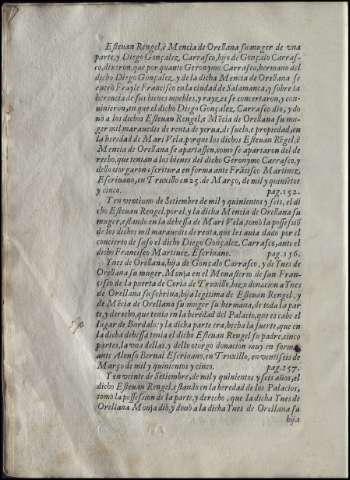 Esteuan Rengel, è Mencia de Orellana su muger de vna
parte, y Diego Gonçalez, Carrasco, hijo de Gonçalo Carras-
co, dixeron, que por quanto Geronymo Carrasco, hermano del
dicho Diego Gonçalez, y de la dicha Mencia de Orellana se
entrò Frayle Francisco en la ciudad de Salamanca, y sobre la
herencia de sus bienes muebles, y rayzes se concertaron, y con-
uinieron, en que el dicho Diego Gonçalez, Carrasco dio, y do-
nò a los dichos Esteuan Rengel, è Mẽcia de Orellana su mu-
ger mil marauedis de renta de yerua, de suelo, è propiedad, en
la heredad de Mari Vela, porque los dichos Esteuan Rẽgel, è
Mencia de Orellana se apartassen, como se apartaron del de
recho, que tenian a los bienes del dicho Geronymo Carrasco, y
dello otorgaron escritura en forma ante Frãcisco Martinez,
Escriuano, en Truxillo en 25. de Março, de mil y quinientos
y cinco. pag. 152.
Y en veintiuno de Setiembre de mil y quinientos y seis, el di
cho Esteuan Rengel, por el, y la dicha Mencia de Orellana su
muger, estando en la dehessa de Mari Vela, tomò la possession
de los dichos mil marauedis de renta, que les auia dado por el
concierto de suso el dicho Diego Gonçalez Carrasco, ante el
dicho Francisco Martinez, Escriuano. pag. 156.
Ynes de Orellana, hija de Gonçalo Carrasco, y de Ynes de
Orellana su muger, Monja en el Monasterio de san Fran-
cisco de la puerta de Coria de Truxillo, hizo donacion a Ynes
de Orellana su sobrina, hija legitima de Esteuan Rengel, y
de Mẽcia de Orellana su muger su hermana, de toda la par-
te, y derecho, que tenia en la heredad del Palacio, que es cabe el
lugar de Bordalo: y la dicha parte era, hecha la suerte, que en
la dicha dehessa tenia el dicho Esteuan Rengel su padre, cinco
partes, la vna dellas, y dello otorgò donacion muy en forma
ante Alonso Bernal Escriuano, en Truxillo, en veintiseis de
Março de mil y quinientos y cinco. pag. 157.
Y en veinte de Setiembre, de mil y quinientos y seis años, el
dicho Esteuan Rengel, estando en la heredad de los Palacios,
tomò la possession de la parte, y derecho, que la dicha Ynes
de Orellana Monja diò, y donò a la dicha Ynes de Orellana su
hija